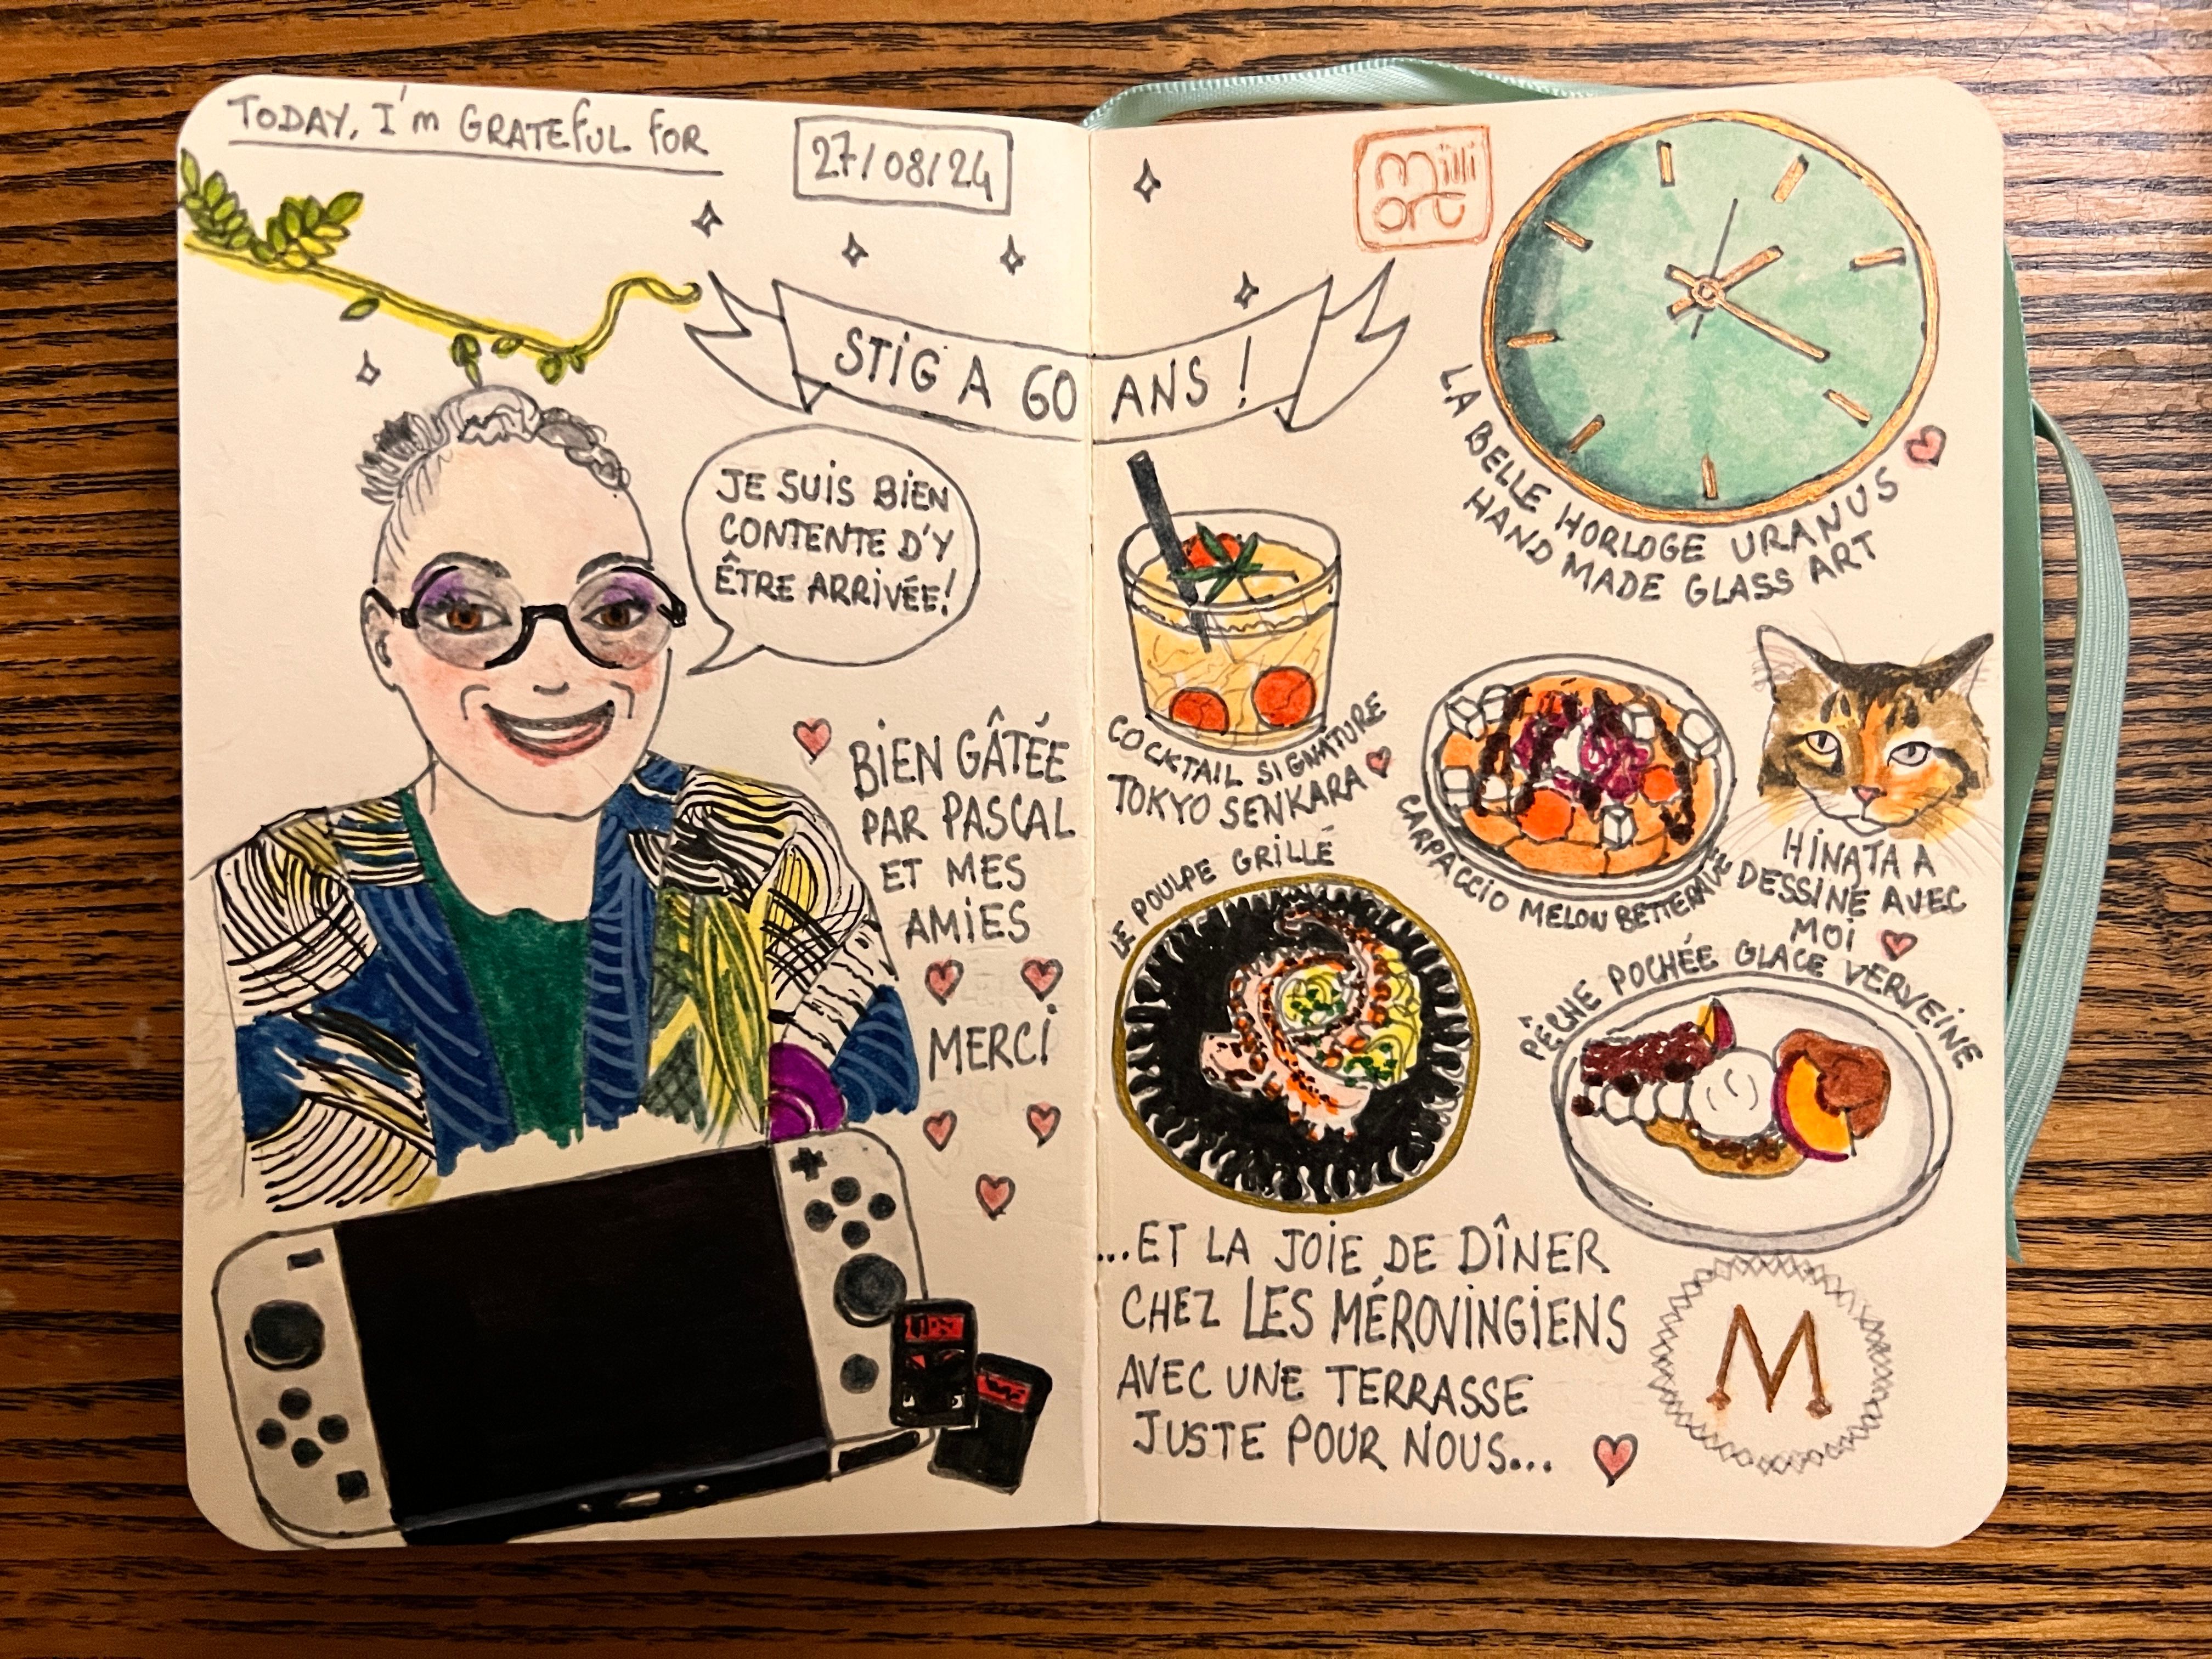 TODAY, I'm GRATEFUL FOR
27/08/24
STIG A 60 ANS !
JE SUIS BIEN
CONTENTE D'Y
ÊTRE ARRIVÉE!
BIEN GÂTÉE
PAR PASCAL
ET MES
AMIES
MERCI
milli
art
LA BELLE HORLOGE URANUS
HAND MADE GLASS ART
COCKTAIL SIGNATURE
TOKYO SENKARA
CARPACCIO MELON BETTERAVE
HINATA A
DESSINÉ AVEC
MOI
LE POULPE GRILLÉ
PÊCHE POCHÉE GLACE VERVEINE
...ET LA JOIE DE DÎNER
CHEZ LES MÉROVINGIENS
AVEC UNE TERRASSE
JUSTE POUR NOUS...
M